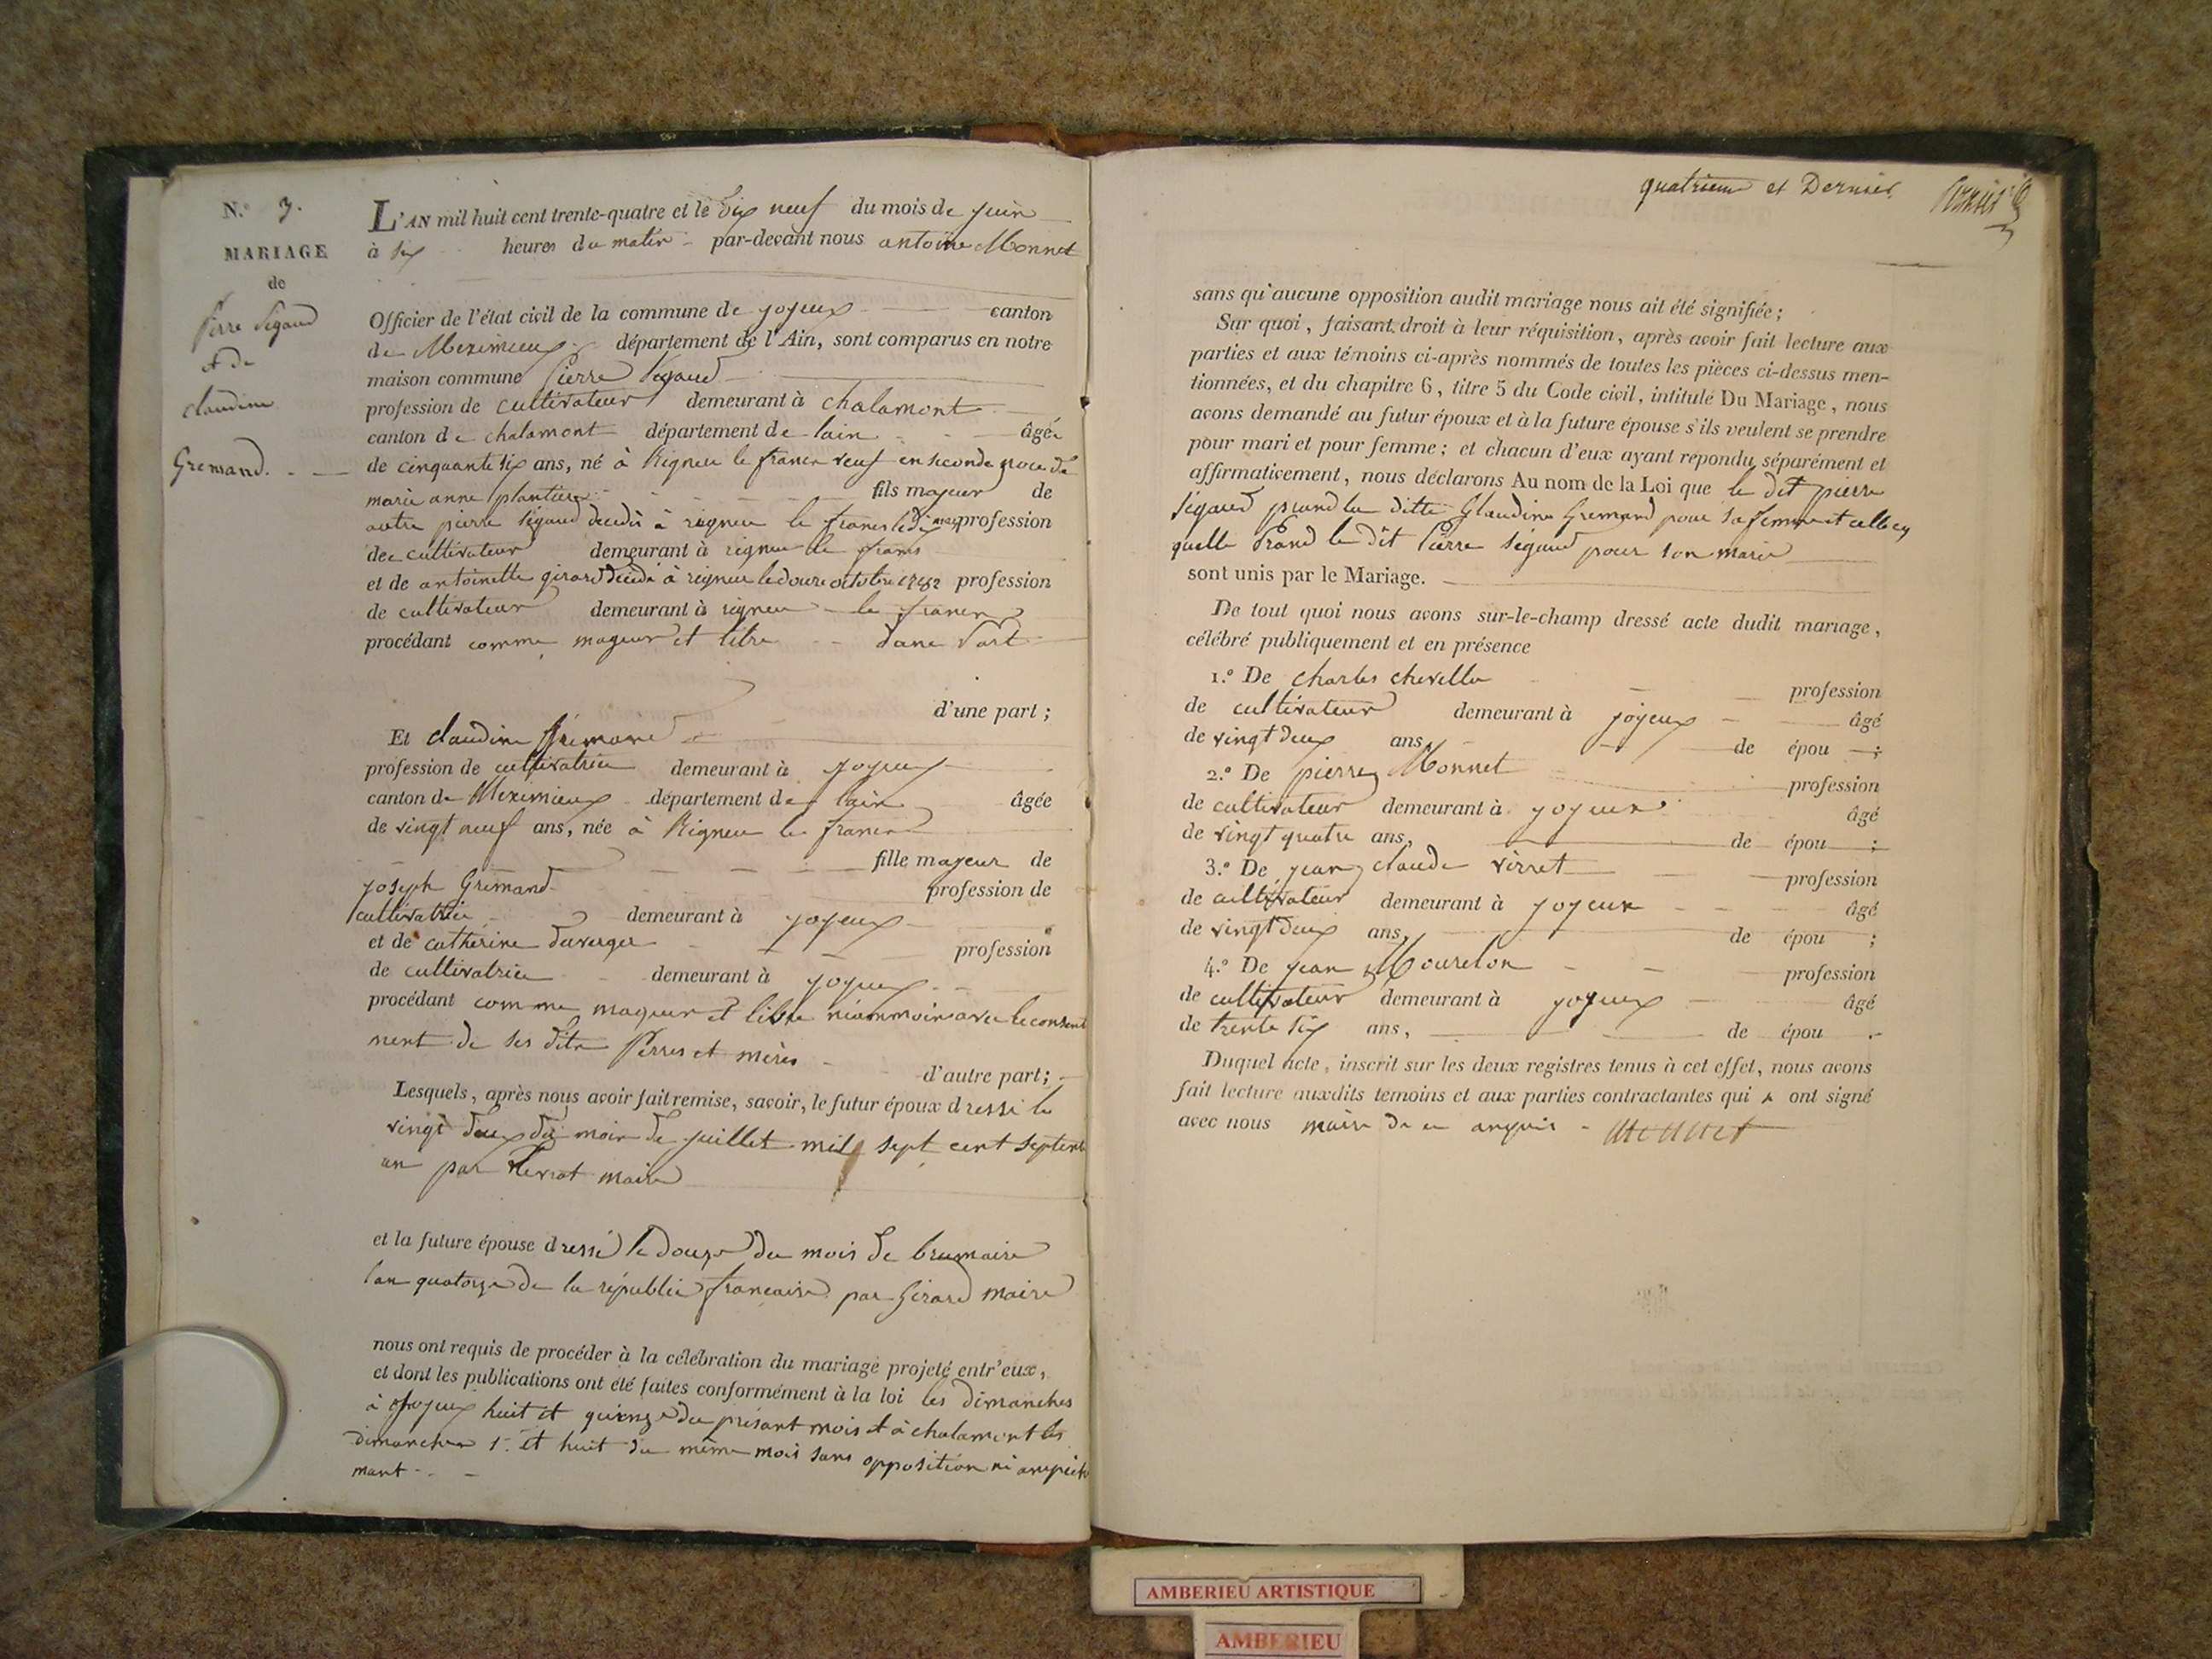 N.º 7.
MARIAGE
de
PierreSégaud
et de
claudine
Gremand.
L'AN mil huit cent trente-quatre et le dix neuf du mois de juin
à six heures du matin par-devant nous antoine Monnet
Officier de l'état civil de la commune de joyeux canton
de Meximieux département de l'Ain, sont comparus en notre
maison commune PierreSégaud
profession de cultivateur demeurant à chalamont
canton de chalamont département de lain âgé
de cinquante six ans, né à Rigneu le franc veuf en seconde noce de
marie anne plantier fils majeur de
autre pierre Ségaud décédé à rigneu le franc le profession
de cultivateur demeurant à rigneu le franc
et de antoinette girard décédé à rigneu le douze octobre profession
de cultivateur demeurant à rigneu le franc
procédant comme mageur et libre dune part
d'une part ;
Et claudine Grémand
profession de cultivatrice demeurant à joyeux
canton de Meximieux département de lain âgée
de vingt neuf ans, née à Rigneu le franc
fille mageur de
joseph Grémand profession de
cultivatrice demeurant à joyeux
et de catherine duverger profession
de cultivatrice demeurant à joyeux
procédant comme mageur et libre néammoins avec le consent
ment de ses dits Perres et mères
d'autre part ;
Lesquels, après nous avoir fait remise, savoir, le futur époux dressé le
vingt deux du mois de juillet mil sept cent septente
un par maire
et la future épouse dressé le douze du mois de brumaire
lan quatorze de la républic francaise par Girard maire
nous ont requis de procéder à la célébration du mariage projeté entr'eux,
et dont les publications ont été faites conformément à la loi les dimanches
à joyeux huit et quinze du présant mois et à chalamont les
dimanches 1.er et huit du même mois sans opposition ni ampêche
mant
quatrieme et Dernier
sans qu'aucune opposition audit mariage nous ait été signifiée ;
Sur quoi, faisant droit à leur réquisition, après avoir fait lecture aux
parties et aux témoins ci-après nommés de toutes les pièces ci-dessus men-
tionnées, et du chapitre 6, titre 5 du Code civil, intitulé Du Mariage, nous
avons demandé au futur époux et à la future épouse s'ils veulent se prendre
pour mari et pour femme ; et chacun d'eux ayant repondu séparément et
affirmativement, nous déclarons Au nom de la Loi que le dit pierre
Ségaud prand la ditte Glaudine Gremand pour sa femme et
quelle Prand le dit Pierre Ségaud pour son marie
sont unis par le Mariage.
De tout quoi nous avons sur-le-champ dressé acte dudit mariage,
célébré publiquement et en présence
1.º De charles chevellu profession
de cultivateur demeurant à joyeux âgé
de vingt deux ans, de épou ;
2.º De pierre Monnet profession
de cultivateur demeurant à joyeux âgé
de vingt quatre ans, de épou ;
3.º De jean claude virret profession
de cultivateur demeurant à joyeux âgé
de vingt deux ans, de épou ;
4.º De jean Mourelon profession
de cultivateur demeurant à joyeux âgé
de trente six ans, de épou .
Duquel acte, inscrit sur les deux registres tenus à cet effet, nous avons
fait lecture auxdits temoins et aux parties contractantes qui ont signé
avec nous maire de ce anquis Monnet
AMBERIEU ARTISTIQUE
AMBERIEU